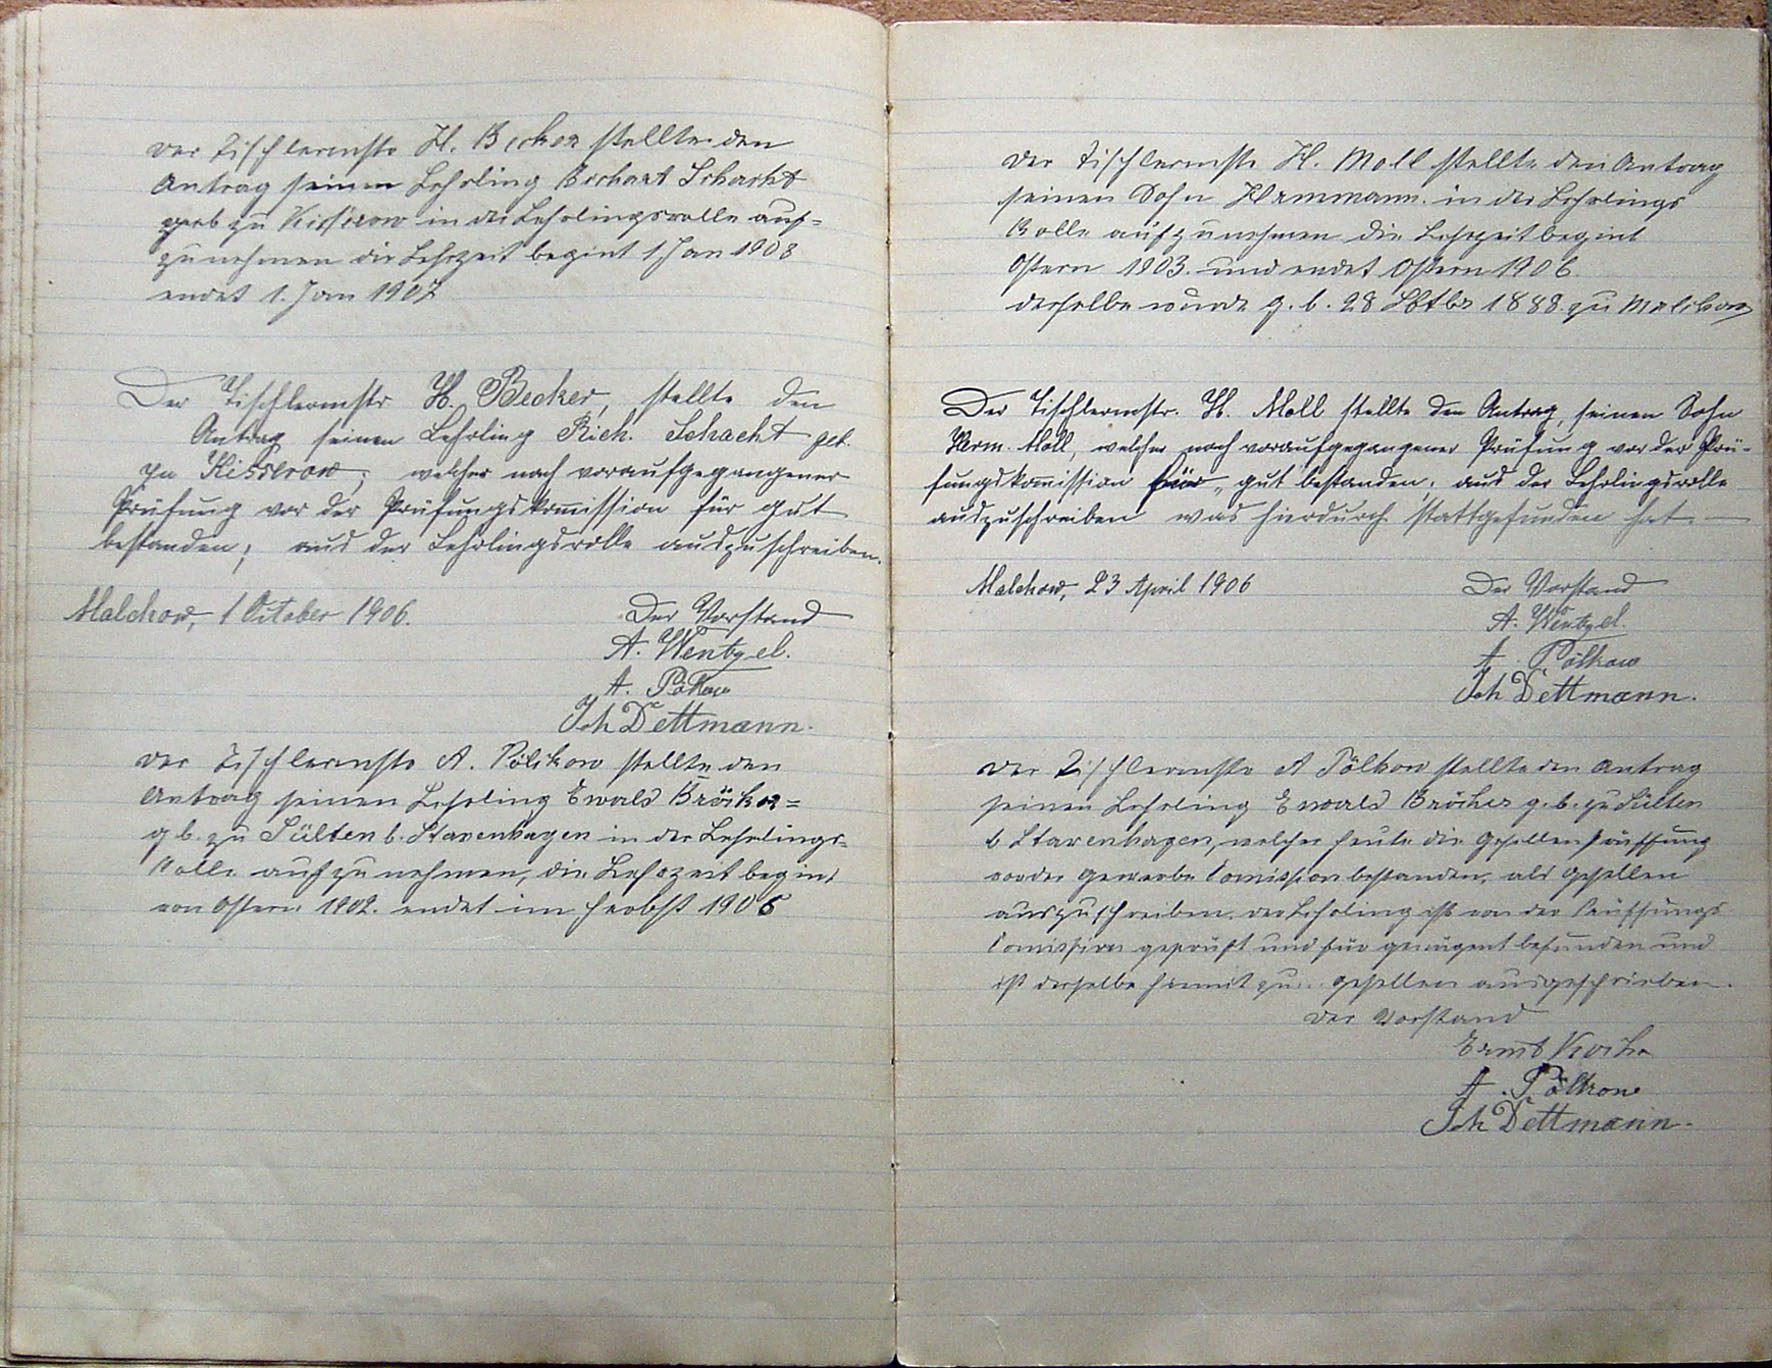 Der Tischlermstr H. Becker stellte den
Antrag seinen Lehrling Richart Schacht
geb zu Kisserow in die Lehrlingsrolle auf=
zunehmen die Lehrzeit begint 1 Jan 1903
endet 1. Jan 1907
Der Tischlermstr H. Becker, stellte den
Antrag seinen Lehrling Rich. Schacht geb.
zu Kisserow, welcher nach voraufgegangener
Prüfung vor der Prüfungskommission für gut
bestanden; aus der Lehrlingsrolle auszuschreiben.
Malchow, 1 October 1906.
Der Vorstand
A. Wentzel.
A. Pölkow
Joh Dettmann.
Der Tischlermstr A. Pölkow stellte den
Antrag seinen Lehrling Ewald Bröcker=
g b. zu Sülten b. Stavenhagen in der Lehrlings=
Rolle aufzunehmen, die Lehrzeit begint
von Ostern 1902. endet im Herbst 1905
Der Tischlermstr H. Moll stellte den Antrag
seinen Sohn Hermmann in die Lehrlings
Rolle aufzunehmen die Lehrzeit begint
Ostern 1903. und endet Ostern 1906
derselbe wurde g. b. 28 1888. zu Malchow
Der Tischlermstr. H. Moll stellte den Antrag, seinen Sohn
Herm. Moll, welcher nach voraufgegangener Prüfung vor der Prü-
fungskommission für „gut bestanden, aus der Lehrlingsrolle
auszuschreiben was hierdurch stattgefunden hat. —
Malchow, 23 April 1906
Der Vorstand
A. Wentzel.
A. Pölkow
Joh Dettmann.
Der Tischlermstr A Pölkow stellte den Antrag
seinen Lehrling Ewald Bröcker g. b. zu Sülten
b Stavenhagen, welcher heute die Gesellen Prüffung
vor der Gewerbe Comission bestanden, als Gesellen
auszuschreiben. der Lehrling ist von der Prüffungs
Comission geprüft und für genügent befunden und
ist derselbe hiermit zum Gesellen ausgeschrieben.
Der Vorstand
Ernst Koch
A. Pölkow
Joh Dettmann.